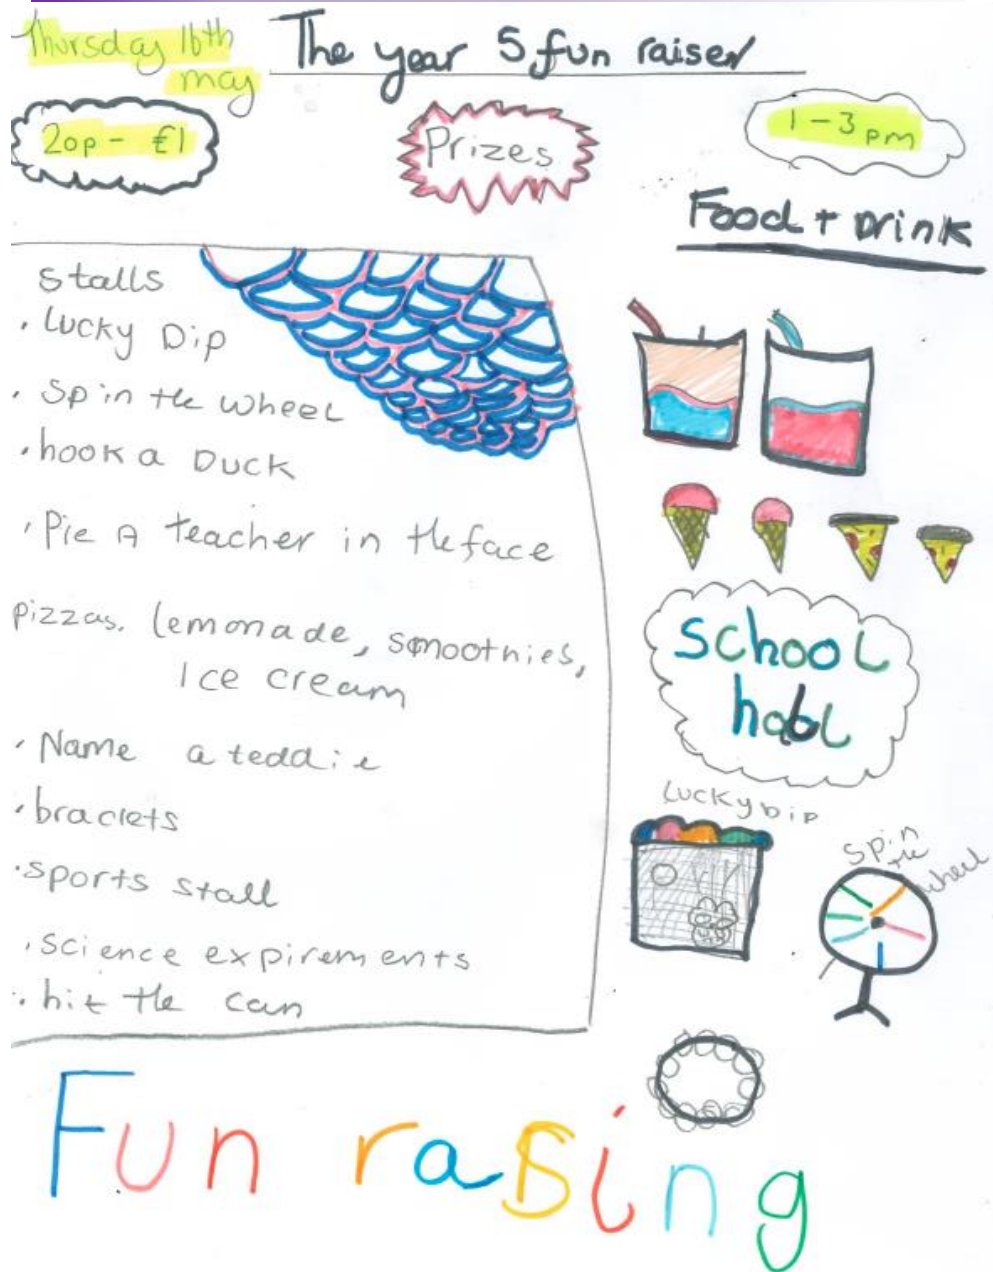 Thursday 16th
may
The year 5 fun raiser
20p - €1
Prizes
1 - 3 pm
Food + Drink
stalls
. Lucky Dip
. Spin the wheel
. hook a Duck
. Pie A teacher in the face
pizzas, lemonade, smoothies,
Ice cream
. Name a teddie
. braclets
. sports stall
. science expirements
. hit the can
School
hall
Lucky Dip
Spin
the
wheel
Fun rasing